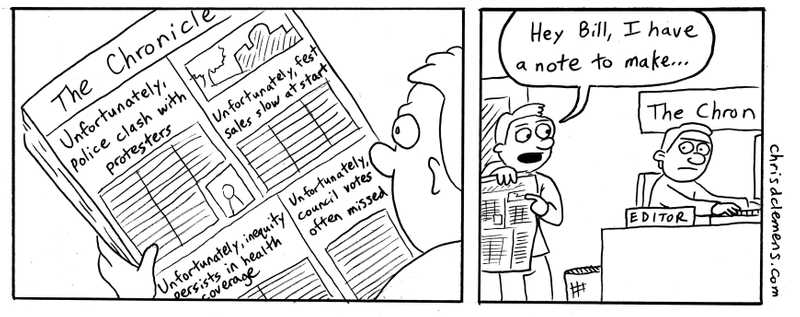 The Chronicle
Unfortunately,
Police clash with
protesters
Unfortunately, fest
sales slow at start
Unfortunately, inequity
persists in health
coverage
Unfortunately,
council votes
often missed
Hey Bill, I have
a note to make...
The Chron
EDITOR
chrisdclemens.com